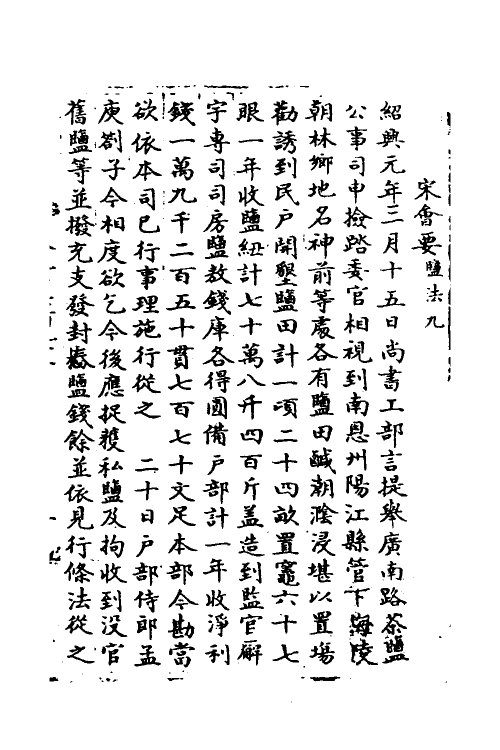 宋會要鹽法九
紹興元年三月十五日尚書工部言提舉廣南路茶鹽
公事司申撿踏委官相視到南恩州陽江縣管下海陵
朝林鄉地名神前等處各有鹽田鹹潮滲浸堪以置場
勸誘到民戶開墾鹽田計一頃二十四畝置竈六十七
眼一年收鹽紐計七十萬八千四百斤盖造到監官廨
宇專司司房鹽敖錢庫各得圓備戶部計一年收淨利
錢一萬九千二百五十貫七百七十文足本部今勘當
欲依本司已行事理施行從之 二十日戶部侍郎孟
庾劄子今相度欲乞今後應捉獲私鹽及拘收到沒官
舊鹽等並撥充支發封樁鹽錢餘並依見行條法從之